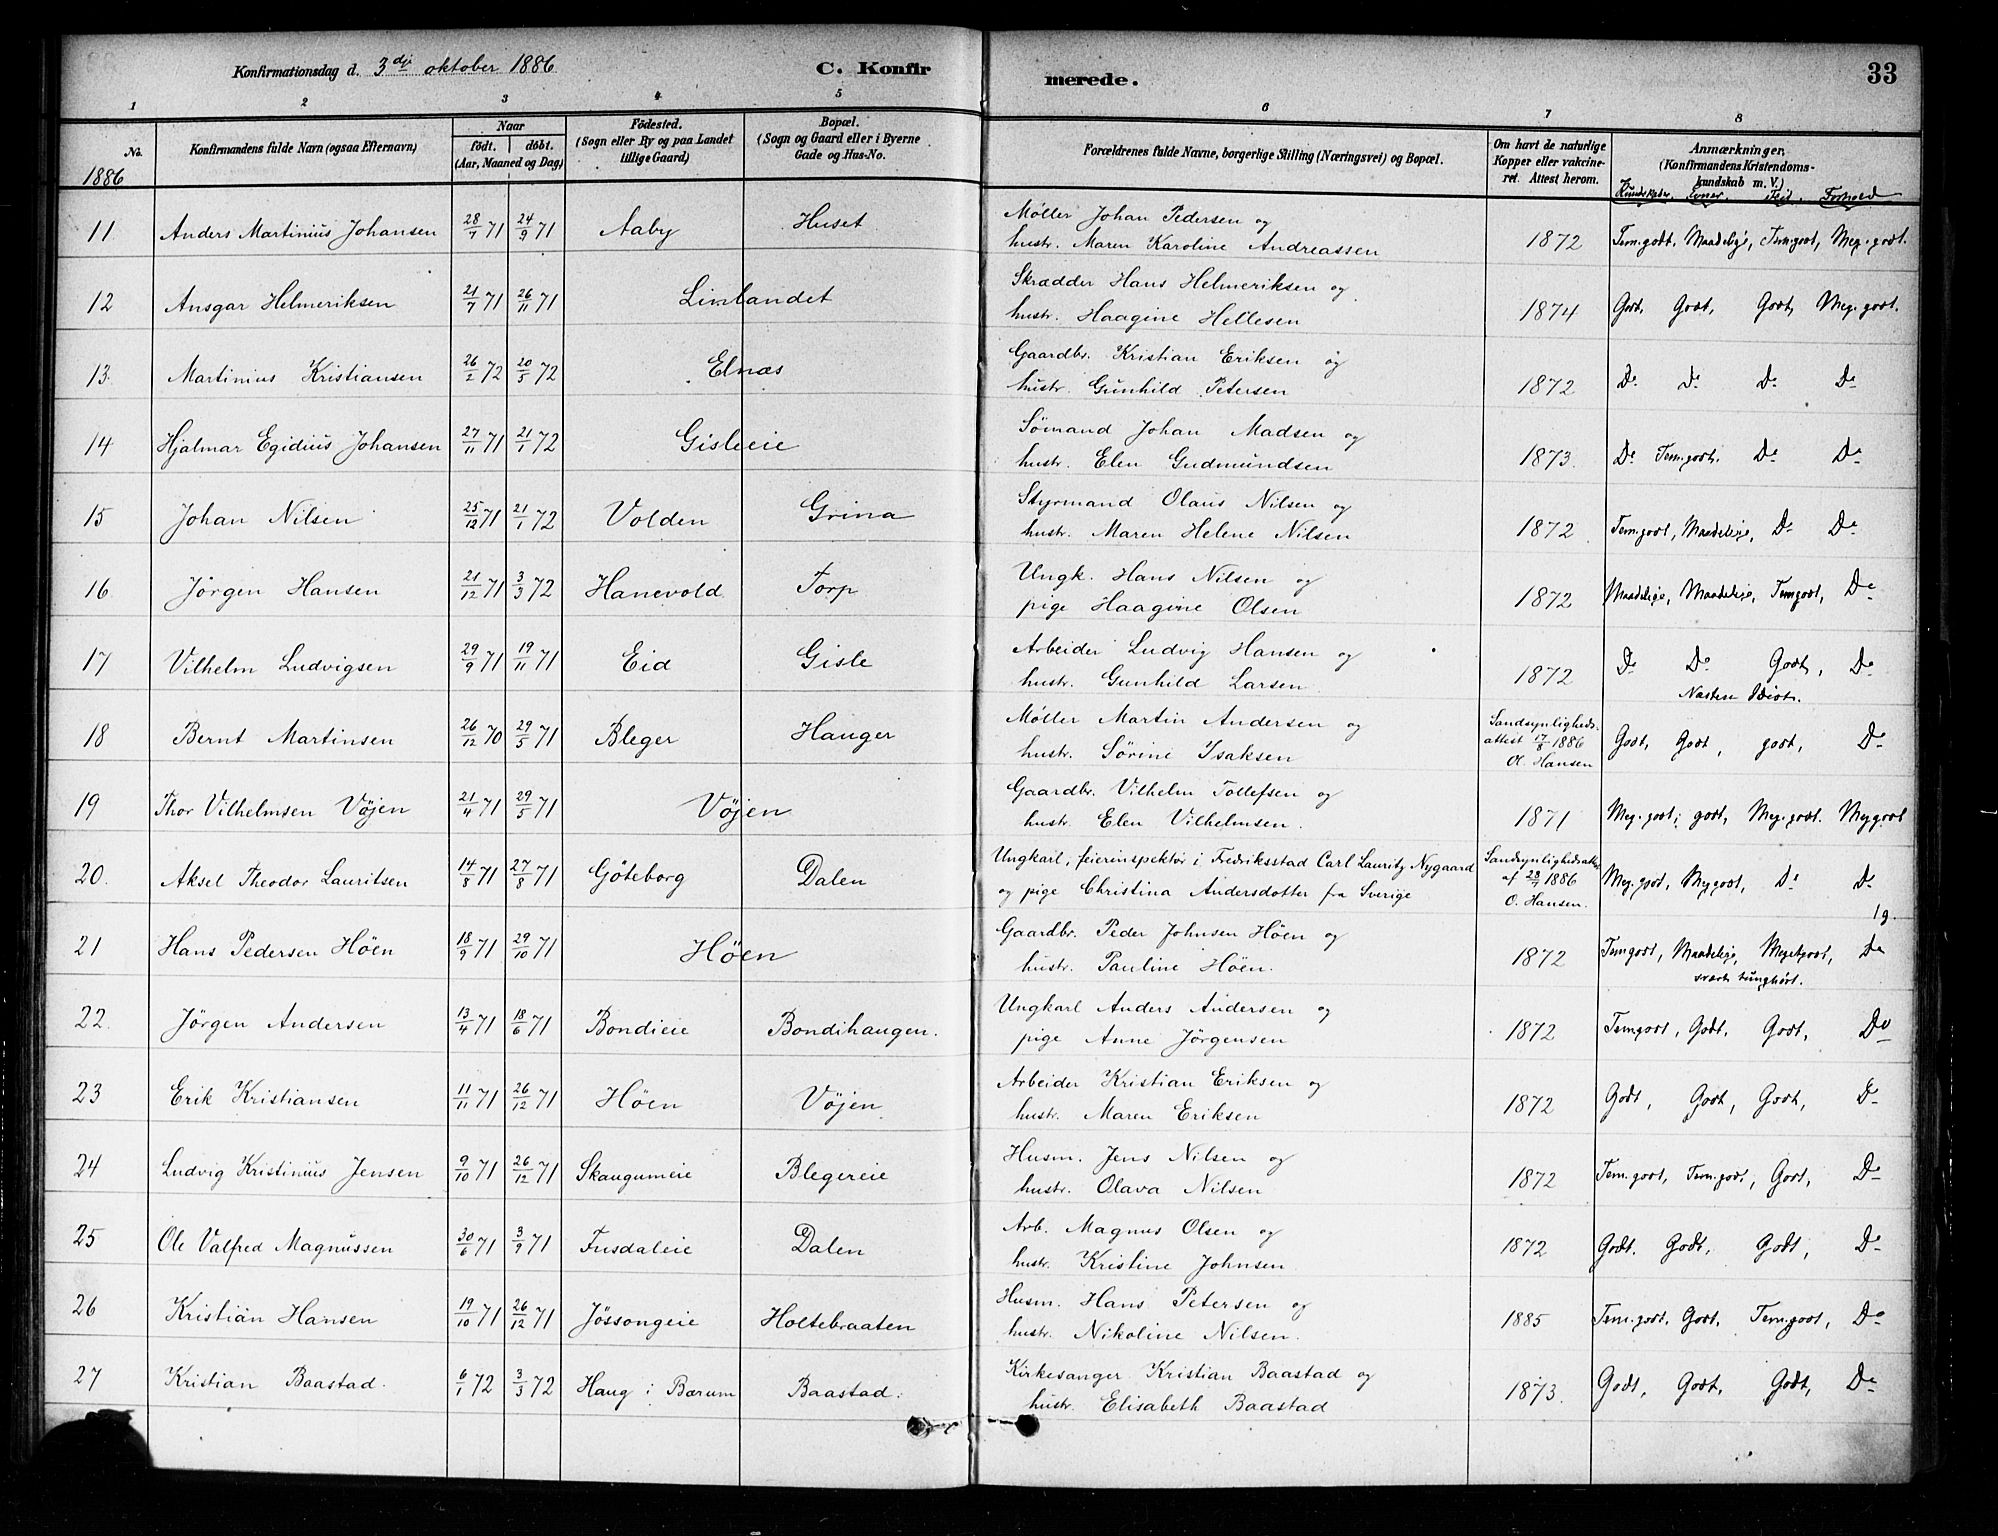 Konfirmationsdag d. 3die oktober 1886 C. Konfirmerede. 33
1 2 3 4 5 6 7 8
No. Konfirmandens fulde Navn (ogsaa Efternavn) Naar födt. döbt. (Aar, Maaned og Dag) Födested. (Sogn eller By og paa Landet tillige Gaard) Bopæl. (Sogn og Gaard eller i Byerne Gade og Hus-No. Forældrenes fulde Navne, borgerlige Stilling (Næringsvei) og Bopæl. Om havt de naturlige Kopper eller vakcineret. Attest herom. Anmærkninger. (Konfirmandens Kristendomskundskab m. V.)
1886 Kundskaber. Evner. Flid. Forhold
11 Anders Martinius Johansen 28/7 71 24/9 71 Aaby Huset Møller Johan Pedersen og
hustr. Maren Karoline Andreassen 1872 Tem.godt, Maadelige, Tem.godt, Meg.godt.
12 Ansgar Helmeriksen 21/7 71 26/11 71 Linlandet Skrædder Hans Helmeriksen og
hustr. Haagine Hellesen 1874 Godt, Godt, Godt, Meg.godt.
13. Martinius Kristiansen 26/2 72 20/5 72 Elnæs Gaardbr. Kristian Eriksen og
hustr. Gunhild Petersen 1872 Do Do Do Do
14 Hjalmar Egidius Johansen 27/11 71 21/1 72 Gisleeie Sømand Johan Madsen og
hustr. Elen Gudmundsen 1873. Do Tem.godt. Do Do
15 Johan Nilsen 25/12 71 21/1 72 Volden Grina Styrmand Olaus Nilsen og
hustr. Maren Helene Nilsen 1872 Tem.godt, Maadelige, Do Do
16 Jörgen Hansen 21/12 71 3/3 72 Hanevold Torp Ungk. Hans Nilsen og
pige Haagine Olsen 1872 Maadelige, Maadelige, Temgodt, Do
17 Vilhelm Ludvigsen 29/9 71 19/11 71 Eid Gisle Arbeider Ludvig Hansen og
hustr. Gunhild Larsen 1872 Do Do Godt, Do
Næsten Idiot.
18 Bernt Martinsen 26/12 70 29/5 71 Bleger Hauger Møller Martin Andersen og
hustr. Sörine Isaksen Sandsynligheds-attest 17/8 1886 Ol. Hansen Godt, Godt, godt, Do
19 Thor Vilhelmsen Vöjen 21/4 71 29/5 71 Vöjen Gaardbr. Vilhelm Tollefsen og
hustr. Elen Vilhelmsen. 1871 Meg.godt; godt, Meg.godt. Mygodt
20. Aksel Theodor Lauritsen 14/8 71 27/8 71 Göteborg Dalen Ungkarl, feierinspektør i Fredriksstad Carl Lauritz Nygaard
og pige Christina Andersdotter fra Sverige Sandsynlighedsatt. af 28/7 1886 O. Hansen. Meg.godt, Mygodt, Do Do
1g.
21 Hans Pedersen Höen 18/9 71 29/10 71 Höen Gaardbr. Peder Johnsen Höen og
hustr. Pauline Höen. 1872 Temgodt, Maadelige, Megetgodt, Do
svært tunghørt.
22. Jörgen Andersen 13/4 71 18/6 71 Bondieie Bondihaugen. Ungkarl Anders Andersen og
pige Anne Jörgensen 1872 Temgodt, Godt, Godt, Do
23 Erik Kristiansen 11/11 71 26/12 71 Höen Vöjen. Arbeider Kristian Eriksen og
hustr. Maren Eriksen 1872 Godt, Godt, Godt, Do
24 Ludvig Kristinius Jensen 9/10 71 26/12 71 Skaugumeie Blegereie Husm. Jens Nilsen og
hustr. Olava Nilsen 1872 Tem.godt, Tem.godt, Godt, Do
25 Ole Valfred Magnussen 30/6 71 3/9 71 Fusdaleie Dalen Arb. Magnus Olsen og
hustr. Kristine Johnsen 1872 Godt. Godt, Godt, Do
26 Kristian Hansen 19/10 71 26/12 71 Jössongeie Holtebraaten Husm. Hans Petersen og
hustr. Nikoline Nilsen. 1885 Tem.godt, Godt, Tem.godt, Do
27 Kristian Baastad. 6/1 72 3/3 72 Haug i Bærum Baastad. Kirkesanger Kristian Baastad og
hustr. Elisabeth Baastad 1873. Godt, Godt, Godt, Do